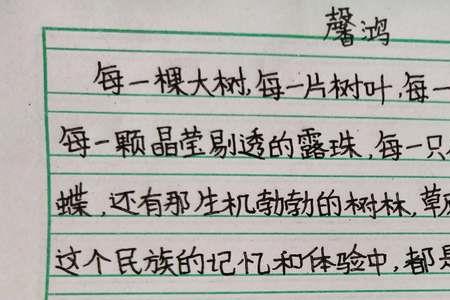 馨鸿
每一棵大树,每一片树叶,每一
每一颗晶莹剔透的露珠,每一只
蝶,还有那生机勃勃的树林,草
这个民族的记忆和体验中,都是